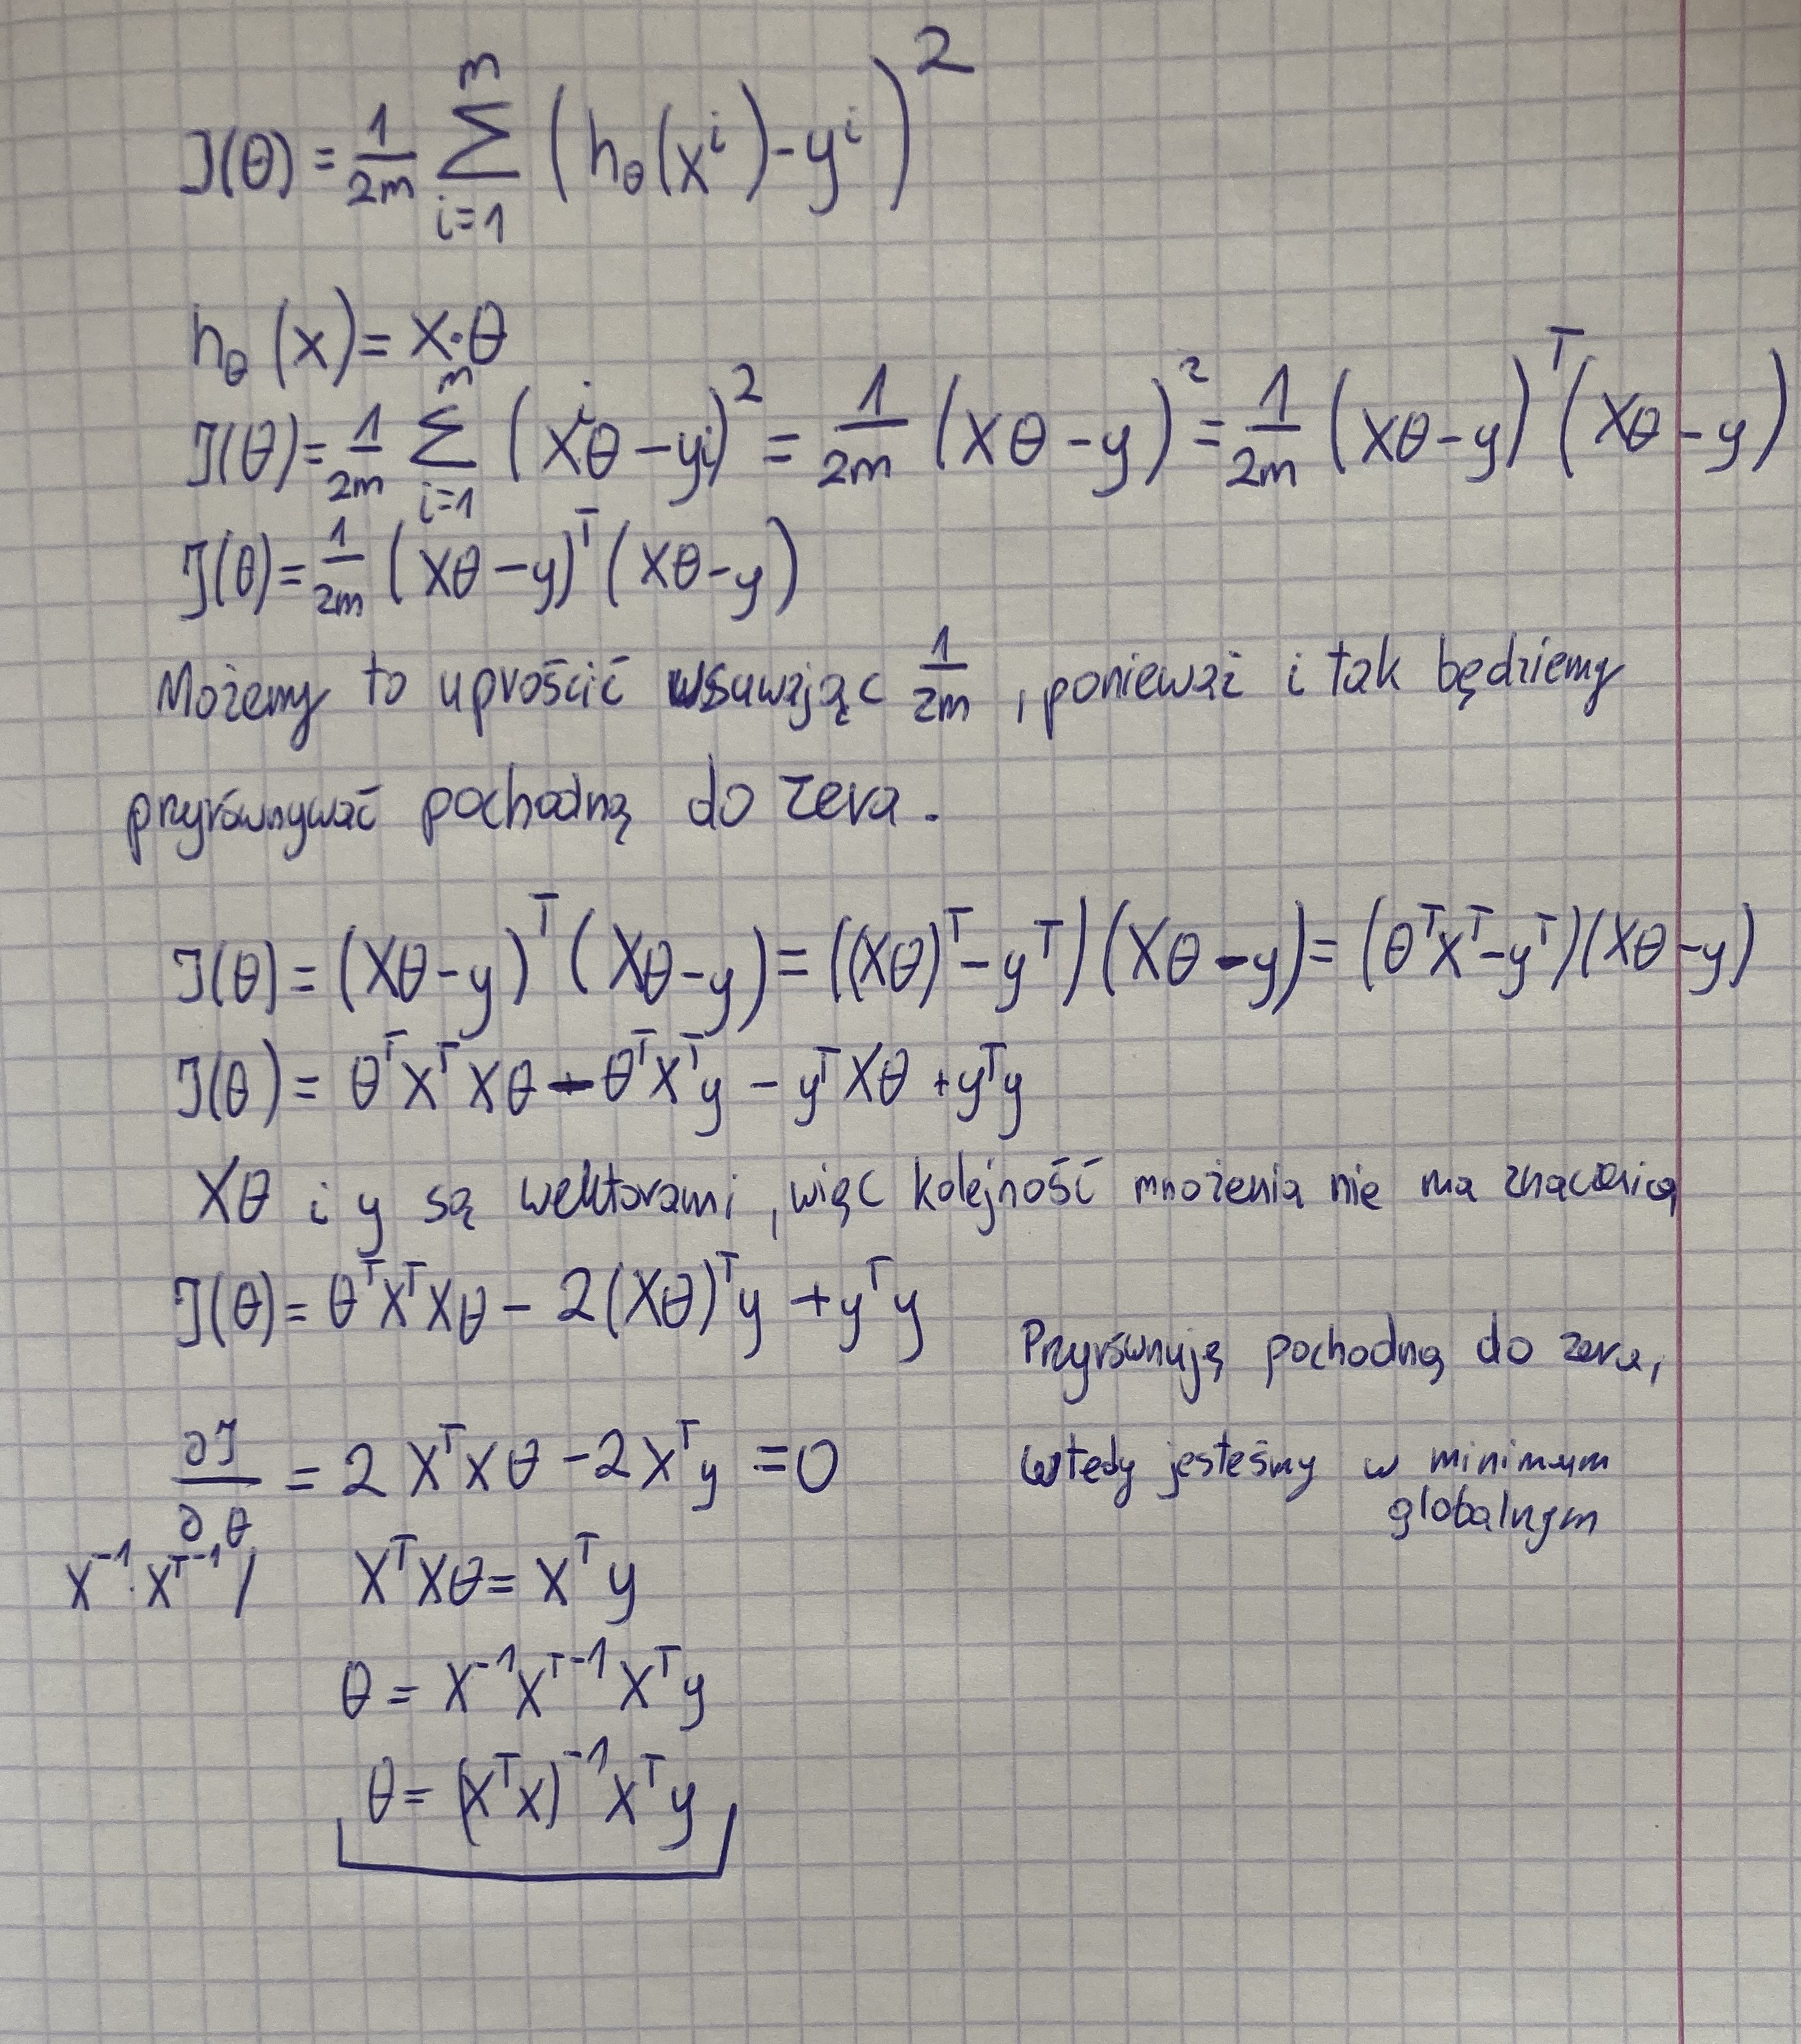 J(θ) = 1/2m Σ_{i=1}^{m} (h_θ(x^i) - y^i)^2
h_θ(x) = x·θ
J(θ) = 1/2m Σ_{i=1}^{m} (x^iθ - yi)^2 = 1/2m (Xθ - y)^2 = 1/2m (Xθ - y)^T (Xθ - y)
J(θ) = 1/2m (Xθ - y)^T (Xθ - y)
Możemy to uprościć usuwając 1/2m, ponieważ i tak będziemy
przyrównywać pochodną do zera.
J(θ) = (Xθ - y)^T (Xθ - y) = ((Xθ)^T - y^T)(Xθ - y) = (θ^T X^T - y^T)(Xθ - y)
J(θ) = θ^T X^T Xθ - θ^T X^T y - y^T Xθ + y^T y
Xθ i y są wektorami, więc kolejność mnożenia nie ma znaczenia
J(θ) = θ^T X^T Xθ - 2(Xθ)^T y + y^T y
Przyrównuję pochodną do zera,
∂J/∂θ = 2 X^T Xθ - 2X^T y = 0
wtedy jesteśmy w minimum
globalnym
X^{-1}·X^{T-1} / X^T Xθ = X^T y
θ = X^{-1} X^{T-1} X^T y
θ = (X^T X)^{-1} X^T y